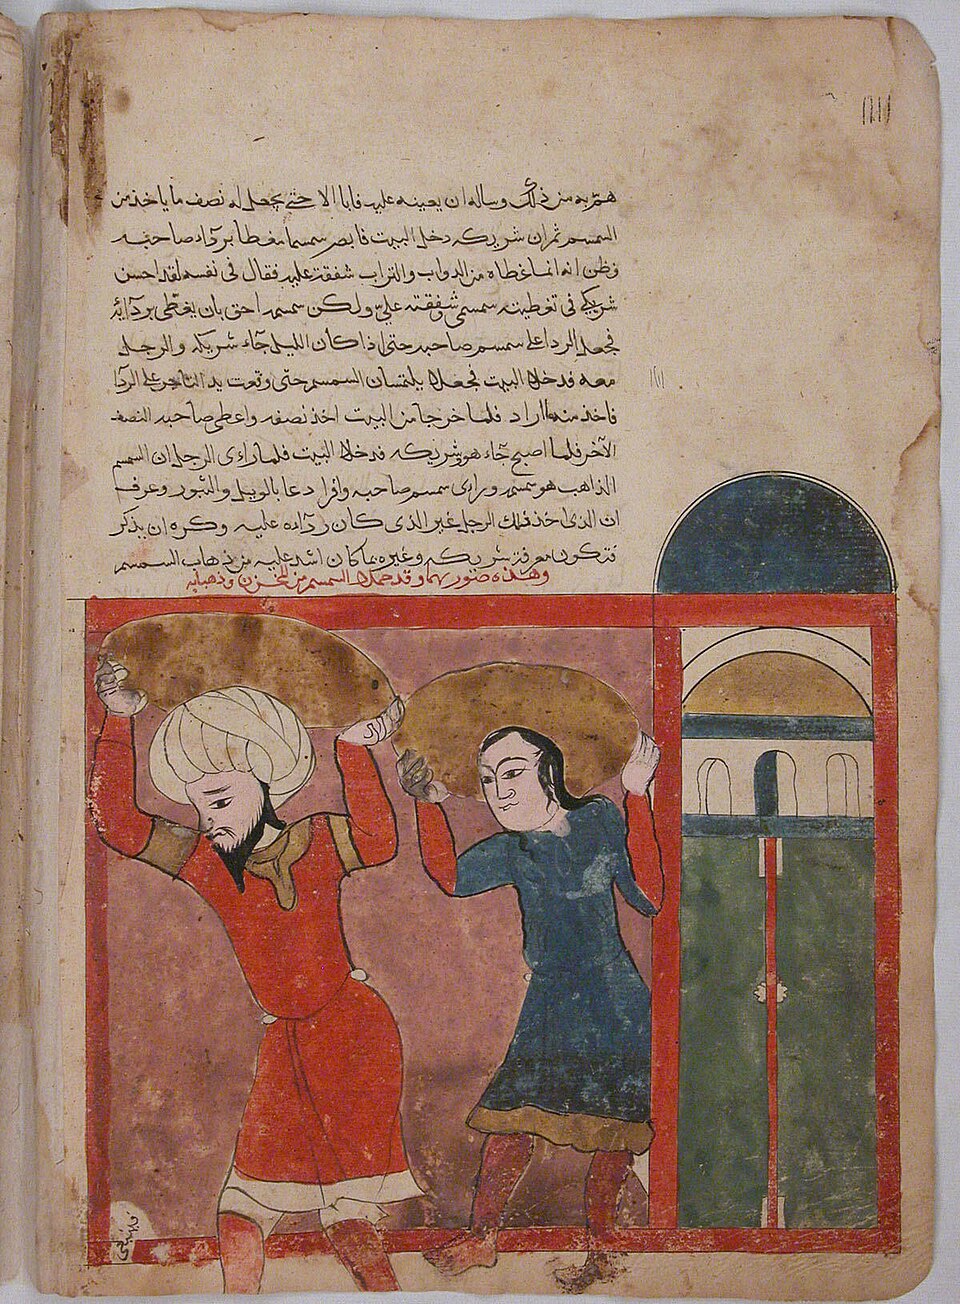 همّ به من ذلك وساله ان يعينه عليه فابا الا حتى يجعل له نصف ما ياخذ من
السمسم ثم ان شريكه دخل البيت فابصر سمسما مغطا بردآء صاحبه
وظن انه انما غطاه من الدواب والتراب شفقة عليه فقال فى نفسه لقد احسن
شريكى فى تغطيته سمسمى وشفقته على ولكن سمسمه احق بان يغطى بردآيه
فجعل الردا على سمسم صاحبه حتى اذا كان الليل جآء شريكه والرجل
معه فدخلا البيت فجعلا يلتمسان السمسم حتى وقعت يد التاجر على الردآ
فاخذ منه ما اراد فلما خرجا من البيت اخذ نصفه واعطى صاحبه النصف
الآخر فلما اصبح جآء هو وشريكه فدخلا البيت فلما راى الرجل ان السمسم
الذاهب هو سمسمه وراى سمسم صاحبه وافرا دعا بالويل والثبور وعرف
ان الذى اخذ ذلك الرجل غير الذى كان ردآه عليه وكره ان يذكر
فتكون معرفة شريكه وغيره بما كان اشد عليه من ذهاب السمسم
وهذه صورتهما وقد حملا السمسم من المخزن وذهبا به